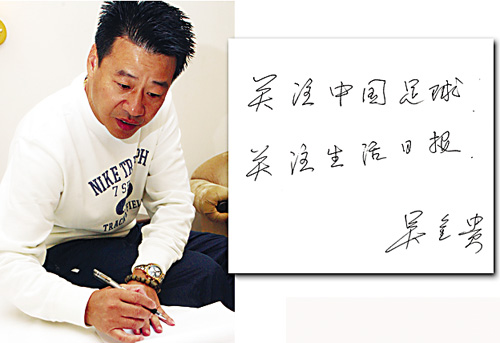 关注中国足球.
关注生活日报.
吴金贵
NIKE TR
7 S
TRAC